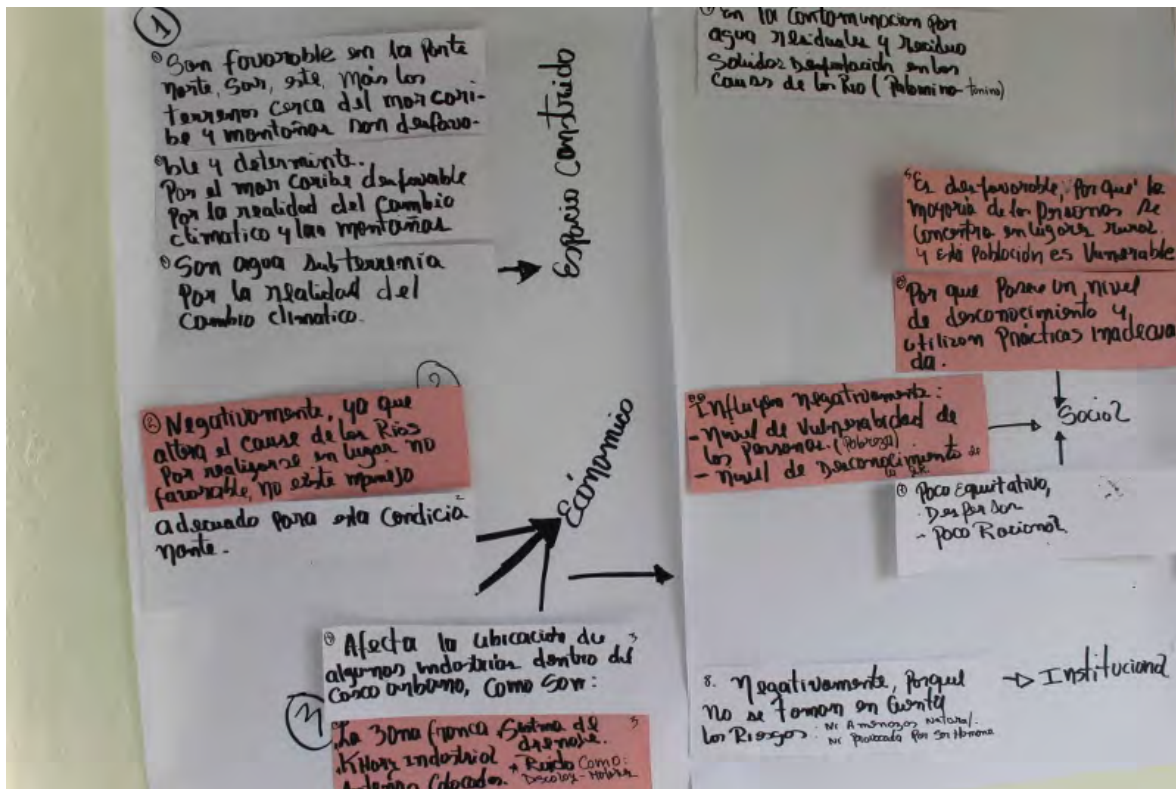 1
Son favorable en la parte
norte, Sur, este, más los
terrenos cerca del mar cari-
be y montañas son desfavo-
ble y determinte.
Por el mar caribe desfavable
Por la realidad del Cambio
climatico y las montañas
Son agua subterrenia
Por la realidad del
Cambio climatico.
Espacio Construido
2
Negativamente, ya que
altera el cause de los Ríos
Por realizarse en lugar no
favorable, no existe manejo
adecuado para esta condicio
nante.
Económico
Afecta la ubicación de
algunas industrias dentro del
Casco urbano, como son:
La zona franca
Sistema de
drenaje.
Industrial
Ruido como:
colocados.
en la contaminacion por
agua residuales y residuo
Solidos en los
Causas de los Rio (Palomino-
Es desfavorable, Por que' la
mayoria de las Personas se
concentra en lugares rural,
y esta Población es Vunerable
Por que Posee un nivel
de desconocimiento y
utilizan Prácticas inadecua
da.
Influyen negativamente:
- Nivel de Vulnerabidad de
los personas. (Pobreza)
- Nivel de Desconocimiento de
Social
Poco Equitativo,
- Poco Racional
8. Negativamente, Porque
No se toman en Cuenta
los Riesgos: Ni Amenazas Natural.
Ni Provocada Por Ser Humano
Institucional